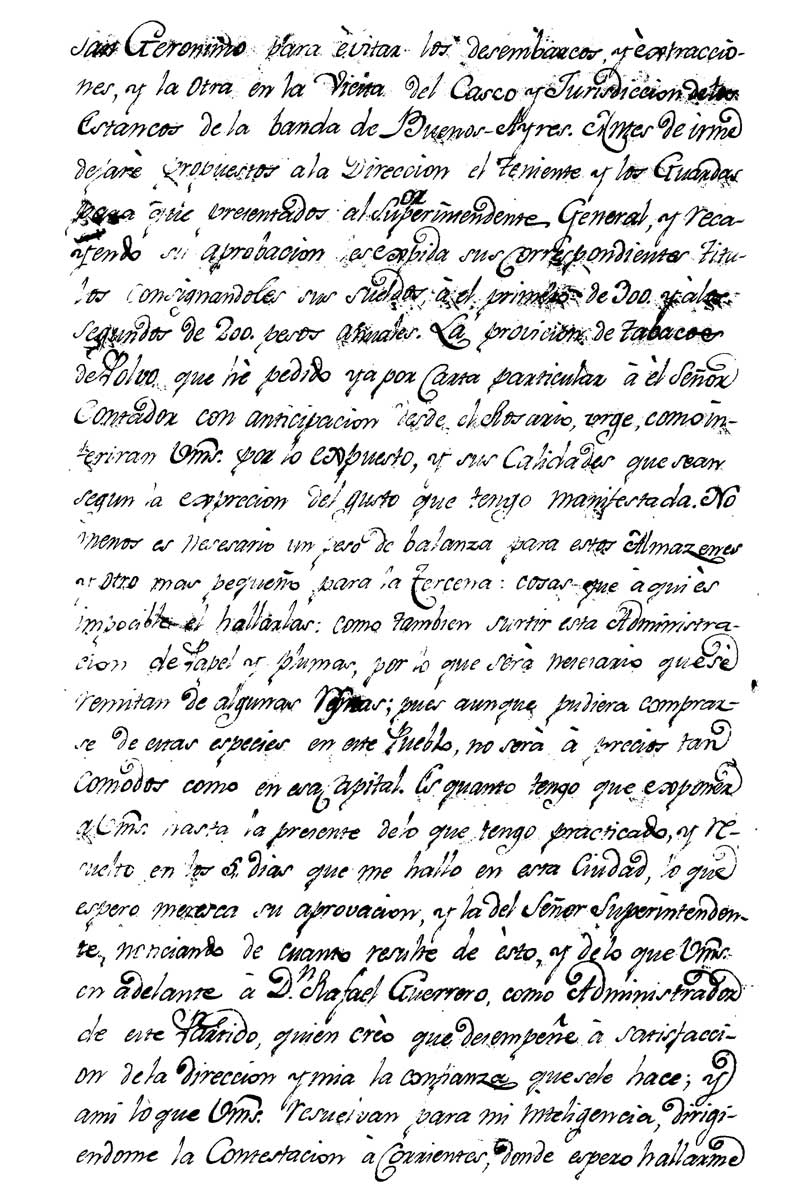 san Geronimo para èvitar los desembarcos, y èxtraccio-
nes, y la otra en la Vicita del Casco y Jurisdiccion de los
Estancos de la banda de Buenos-Ayres. Antes de irme
dejarè propuestos a la Direccion el teniente y los Guardas
para que presentados al Superintendente General, y reca-
yendo su aprobacion les expida sus Correspondientes titu-
los consignandoles sus sueldos, à el primero de 300. y à los
segundos de 200. pesos anuales. La provicion de tabacos
de Polvo, que hè pedido ya por Carta particular à èl Señor
Contador con anticipacion desde el Rosario, urge, como in-
feriran Vms. por lo expuesto, y sus Calidades que sean
segun la exprecion del gusto que tengo manifestada. No
menos es necesario un peso de balanza para estos Almazenes
y otro mas pequeño para la tercena: cosas que àqui ès
impocible el hallarlas: como tambien surtir esta Administra-
cion de Papel y plumas, por lo que serà necesario que se
remitan de algunas; pues aunque pudiera comprar-
se de estas especies en este Pueblo, no serà à precios tan
comodos como en esa Capital. Es quanto tengo que exponer
a Vms. hasta la presente de lo que tengo practicado, y re-
suelto en los 5. dias que me hallo en esta Ciudad, lo que
espero meresca su aprovacion, y la del Señor Superintenden-
te, de cuanto resulte de èsto, y de lo que Vms.
en adelante à D.n Rafael Guerrero, como Administrador
de este Partido, quien creo que desempeñe à satisfacci-
on de la direccion y mia la confianza que sele hace; y
ami lo que Vms. resuelvan para mi inteligencia, dirigi-
endome la Contestacion à Corrientes, donde espero hallarme